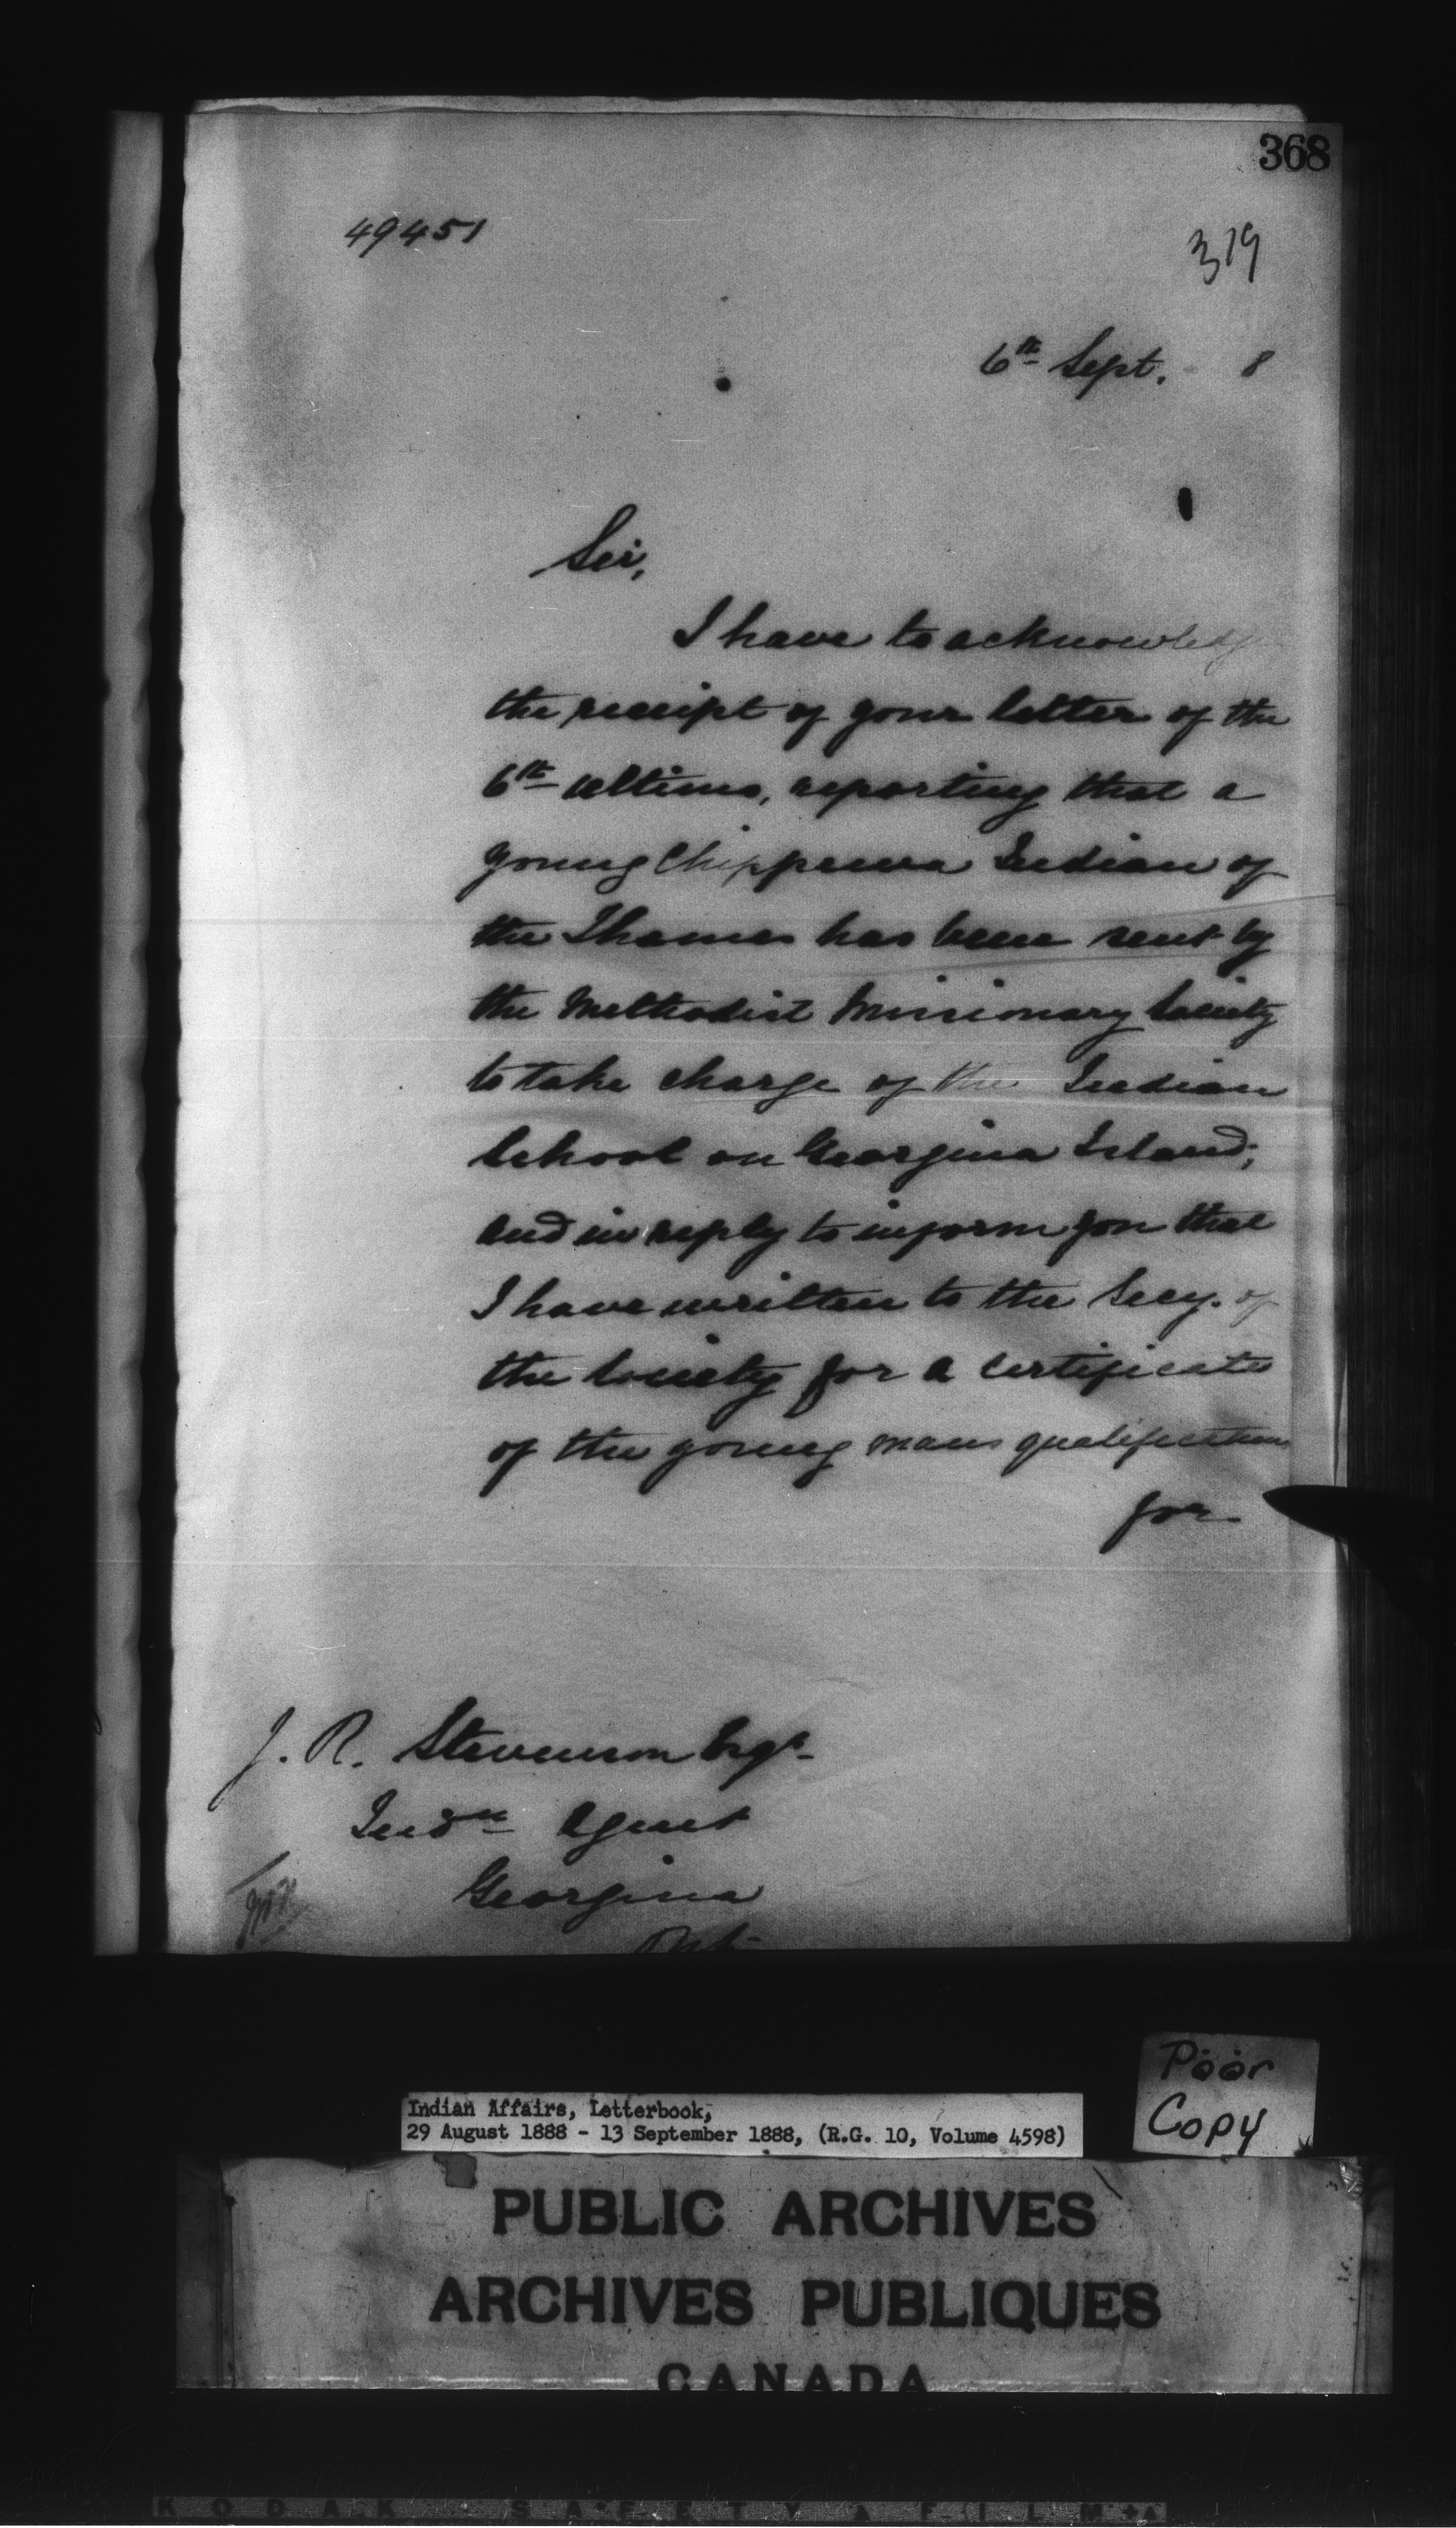 368
49451
319
6th Sept. 8
Sir,
I have to acknowledge
the receipt of your letter of the
6th ultimo, reporting that a
young Chippewa Indian of
the Thames has been sent by
the Methodist Missionary Society
to take charge of the Indian
School on Georgina Island;
and in reply to inform you that
I have written to the Secy. of
the Society for a certificate
of the young mans qualification
for
J. R. Stevenson Esqr
Indn Agent
Georgina
Ont.
Poor
Copy
Indian Affairs, Letterbook,
29 August 1888 - 13 September 1888, (R.G. 10, Volume 4598)
PUBLIC ARCHIVES
ARCHIVES PUBLIQUES
CANADA
KODAK SAFETY FILM